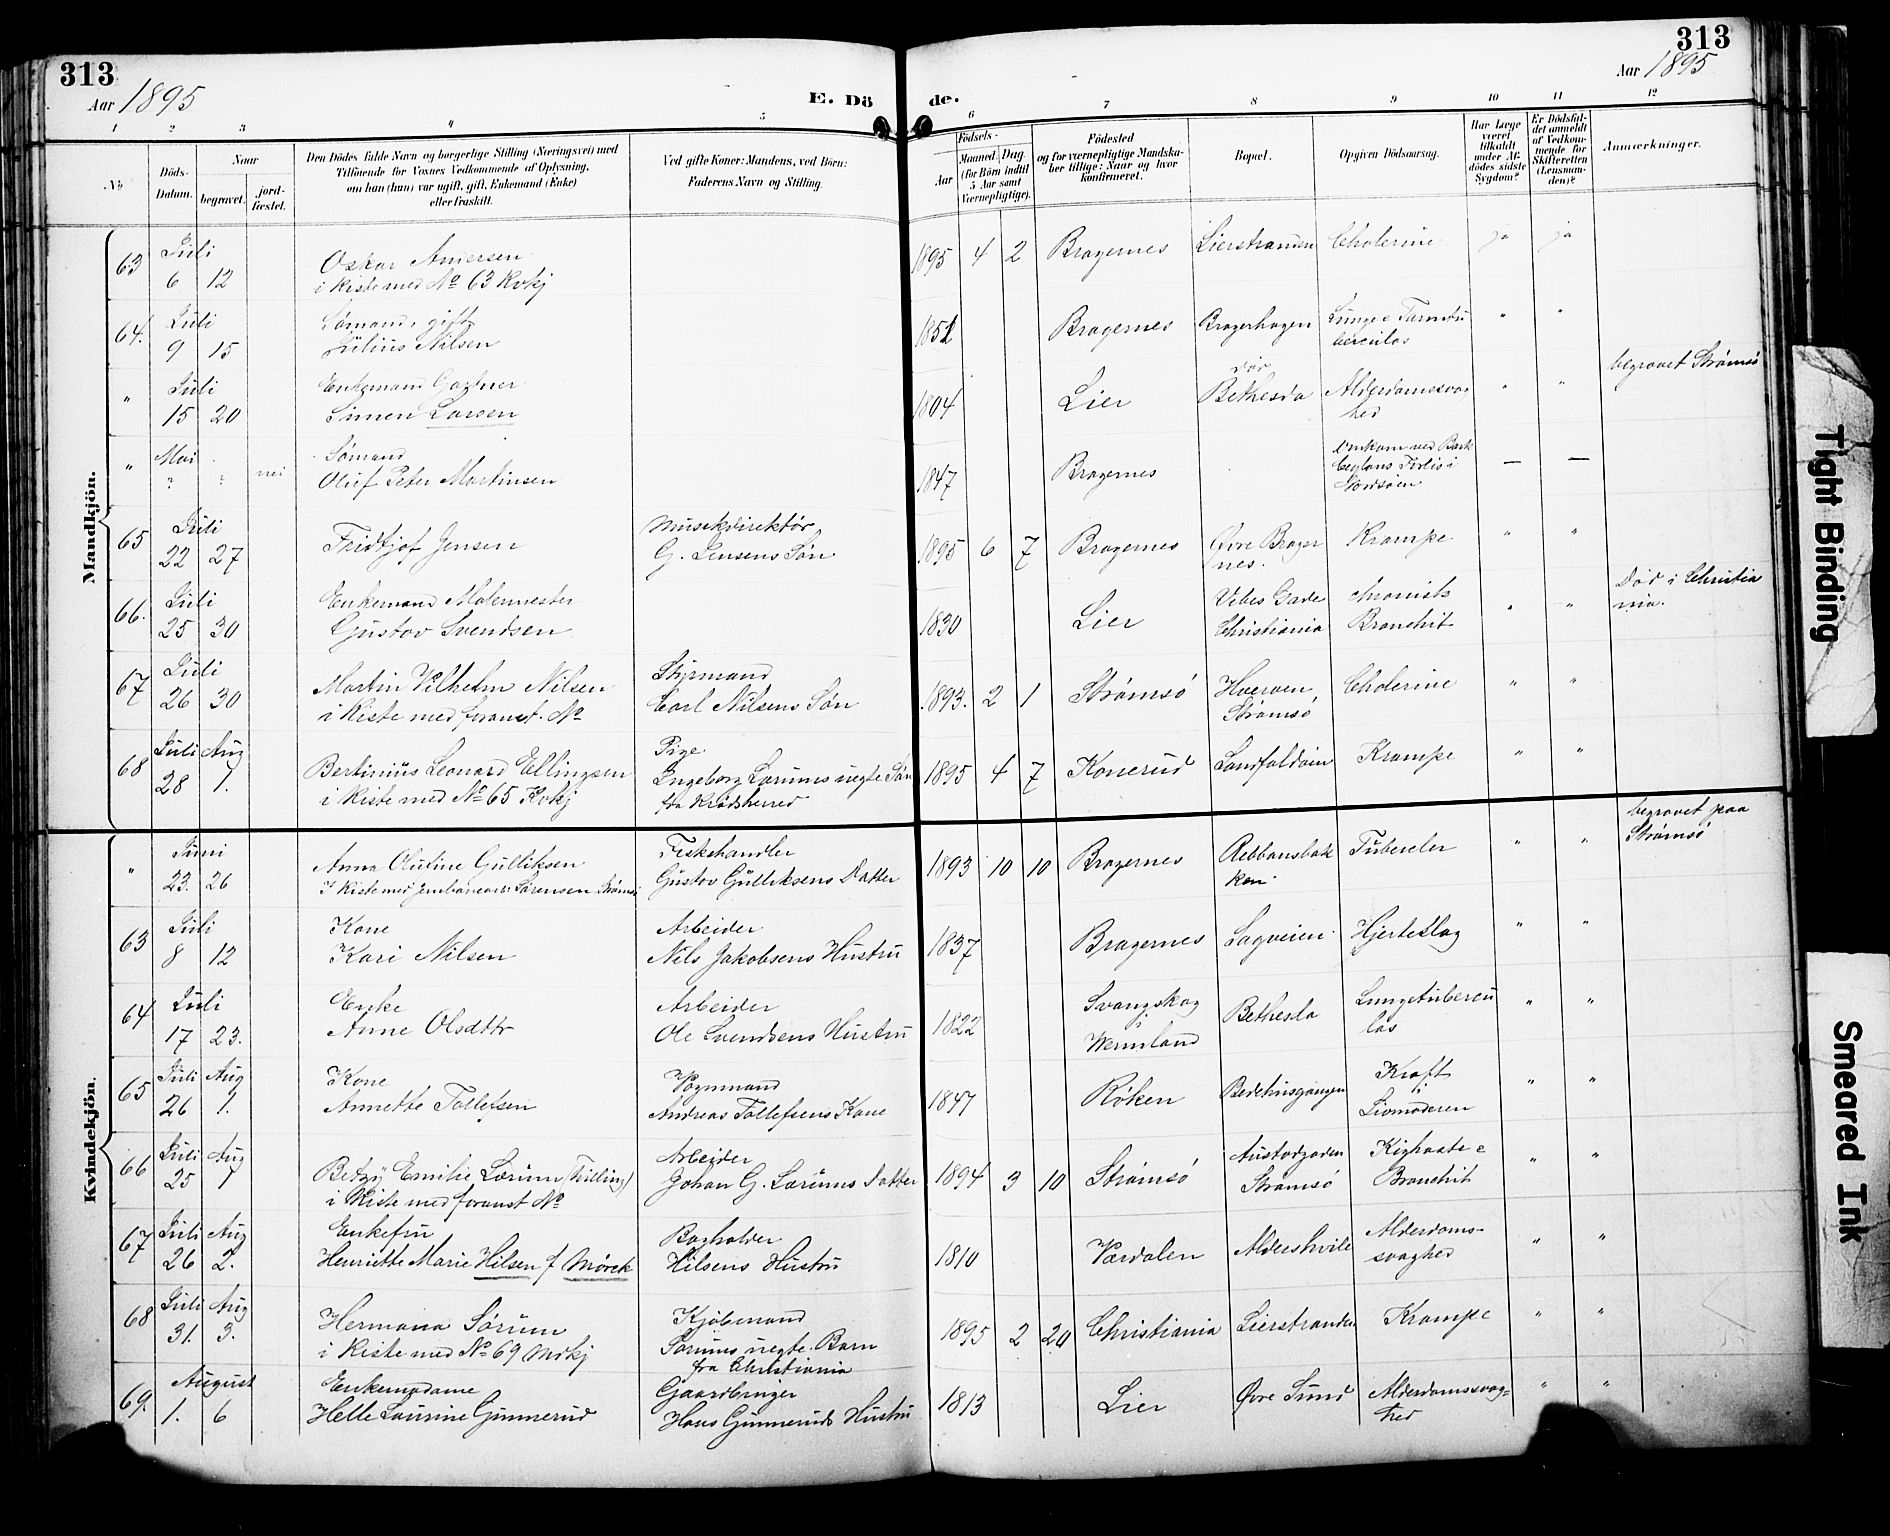 313
Aar 1895
E. Dö
de.
313
Aar 1895
1 2 3 4 5 6 7 8 9 10 11 12
No
Döds-Datum.
Naar
begravet.
jord-fæstet.
Den Dödes fulde Navn og borgerlige Stilling (Næringsvei) med
Tilföiende for Voxnes Vedkommende af Oplysning,
om han (hun) var ugift, gift, Enkemand (Enke)
eller fraskilt.
Ved gifte Koner: Mandens, ved Börn:
Faderens Navn og Stilling.
Födsels-
Aar
Maaned. Dag.
(for Börn indtil
5 Aar samt
Værnepligtige).
Födested
og for værnepligtige Mandska-
ber tillige: Naar og hvor
konfirmeret.
Bopæl.
Opgiven Dödsaarsag.
Har Læge
været
tilkaldt
under Af-
dödes sidste
Sygdom?
Er Dödsfal-
det anmeldt
af Vedkom-
mende for
Skifteretten
(Lensman-
den)?
Anmærkninger.
Mandkjön.
63 Juli 6 12 Oskar Andersen 1895 4 2 Bragernes Lierstranden Cholerine ja ja
i Kiste med No 63 Kvkj
64. Juli 9 15 Sømand, gift 1851 Bragernes Bragerhagen Lunge e Tarmtu
Julius Nilsen berculos " "
" Juli 15 20 Enkemand Gartner 1804 Lier Bethesda Alderdomssvag " " begravet Strømsø
Simen Larsen hed
" Mai ? ? nei Sømand 1847 Bragernes Omkom ved Bark — —
Oluf Peter Martinsen Ceylons Forlis i
Nordsøen
65 Juli 22 27 Fridtjof Jensen Musikdirektør 1895 6 7 Bragernes Øvre Brager Krampe " "
G. Jensens Søn nes.
66. Juli 25 30 Enkemand Malermester 1830 Lier Vibes Gade chronisk " " Død i Christia
Gustav Svendsen Christiania Bronchit nia.
67 Juli 26 30 Martin Vilhelm Nilsen Styrmand 1893. 2 1 Strømsø Hverven, Cholerine " "
i Kiste med foranst. No Carl Nilsens Søn Strømsø
68 Juli 28 Aug 1. Bertinius Leonard Ellingsen Pige 1895 4 7 Konerud Landfaldøien Krampe " "
i Kiste med No 65 Kvkj Ingeborg Larums uegte Søn
fra Krødsherred
Kvindekjön.
" Juni 23. 26 Anna Olufine Gulliksen Fiskehandler 1893 10 10 Bragernes Rebbansbak Tubercler " " begravet paa
I Kiste med Jernbanearb. Sørensen Strømsø Gustav Gulliksens Datter ken. Strømsø
63 Juli 8 12 Kone Arbeider 1837 Bragernes Sagveien Hjerteslag " "
Kari Nilsen Nils Jakobsens Hustru
64 Juli 17 23. Enke Arbeider 1822 Svangskog Bethesda Lungetubercu " "
Anne Olsdttr Ole Svendsens Hustru i Wermland los
65 Juli 26 Aug 1. Kone Vognmand 1847 Røken Bedehusgangen Kræft " "
Annette Tollefsen Andreas Tollefsens Kone i Livmoderen
66 Juli 25 Aug 1 Betzy Emilie Larum (Tvilling) Arbeider 1894 3 10 Strømsø Austadgaden Kighoste e " "
i Kiste med foranst No Johan G. Larums Datter Strømsø Bronchit
67 Juli 26 Aug 2. Enkefru Bogholder 1810 Værdalen Aldershvile Alderdoms- " "
Henriette Marie Hilsen f Mørck Hilsens Hustru svaghed
68 Juli 31. Aug 3. Hermana Sørum Kjøbmand 1895 2 20 Christiania Lierstranden Krampe " "
i Kiste med No 69 Mdkj Sørums uegte Barn
fra Christiania
69. August 1. 6 Enkemadame Gaardbruger 1813 Lier Øvre Sund Alderdomssvag- " "
Helle Laurine Gunnerud Hans Gunneruds Hustru hed
Tight Binding
Smeared Ink